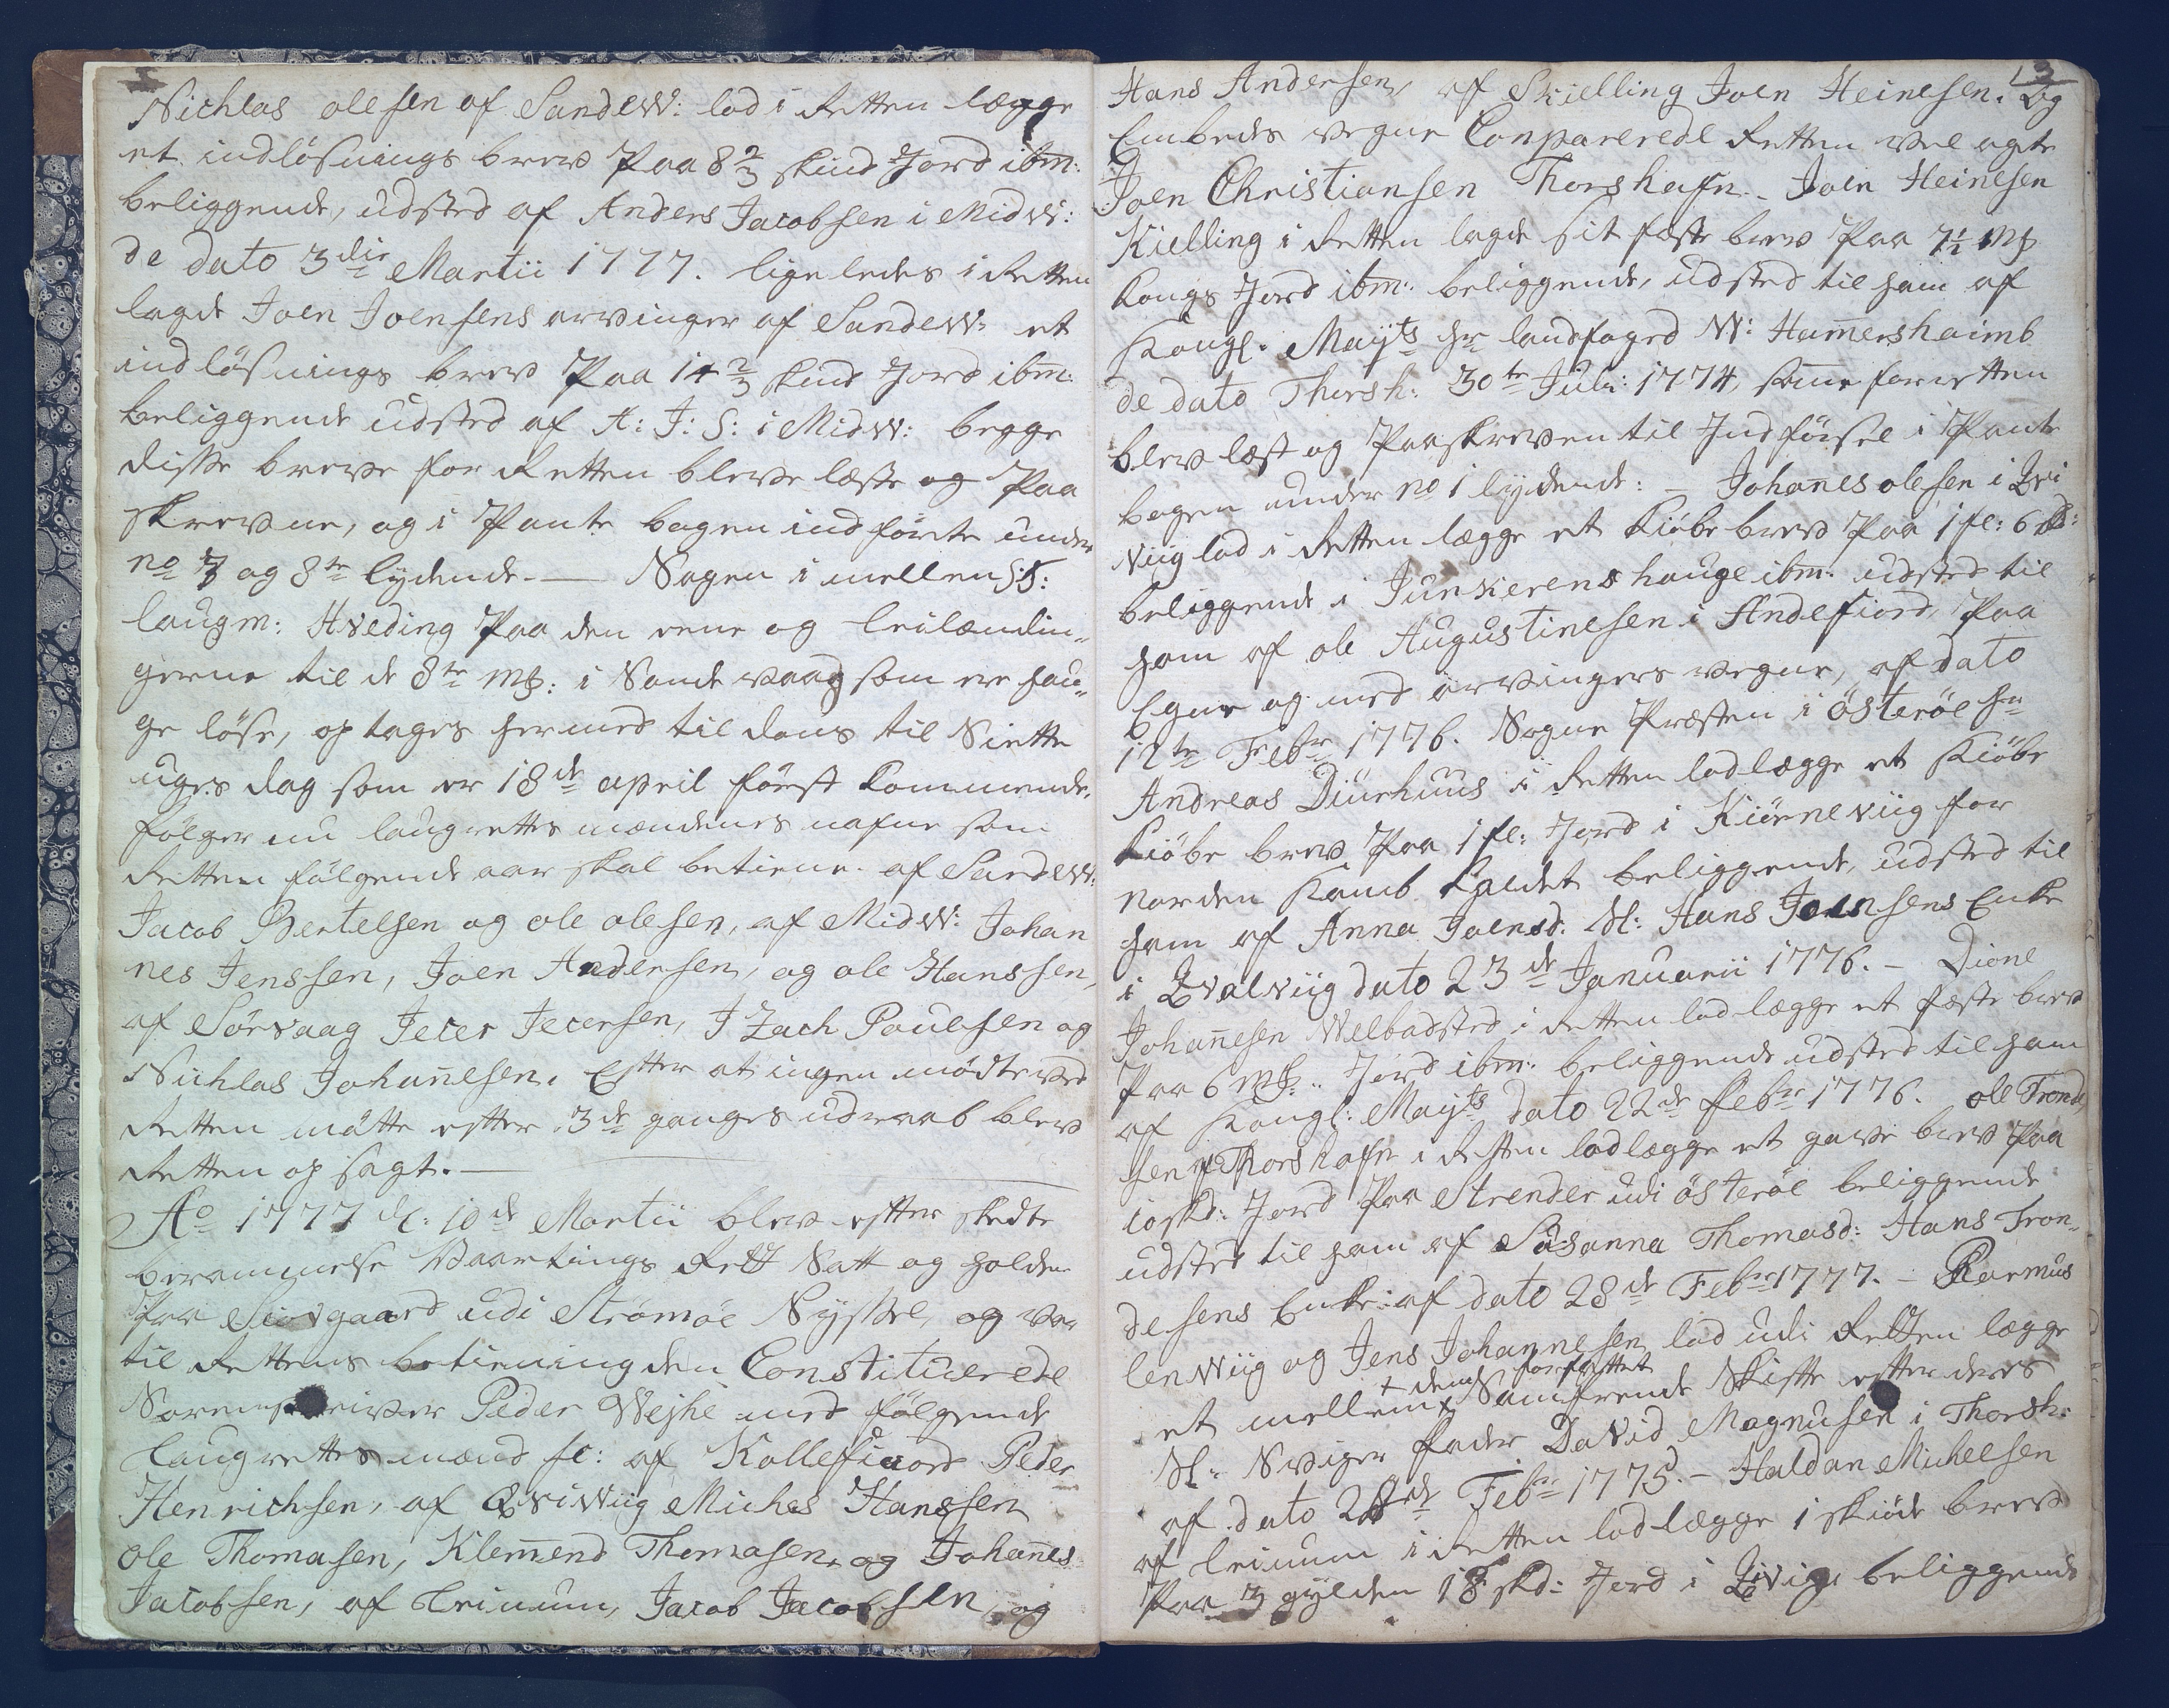 Nichlas olesen af SandeW: lod i Retten lægge
et indlösnings brev Paa 8 2/3 skind Jord ibm:
beliggende, udsted af Anders Jacobsen i MidW:
de dato 3die Martii 1777. lige ledes i Retten
lagde Joen Joensens arvinger af SandeW: et
indlösnings brev Paa 14 2/3 skind Jord ibm:
beliggende udsted af A: J: S: i MidW: begge
disse breve for Retten bleve læste og Paa
skrevne, og i Pante bogen indförte under
no 7 og 8te lydende. — Sagen i mellem S:
laugm: Hveding Paa den eene og leilændin„
gerne til de 8te mk: i Sandevaag som ere hau„
ge löse, optages hermed til doms til Siette
uges dag som er 18de april först kommende.
fölger nu laugrettes mændenes nafne som
Retten fölgende aar skal betiene. af SandeW:
Jacob Bertelsen og ole olesen, af MidW: Johan
nes Jenssen, Joen Andersen, og ole Hanssen,
af Sörvaag Jecer Jecersen, JZach Poulsen og
Nichlas Johannesen. Efter at ingen mödte ved
Retten mötte efter 3de ganges udraab blev
Retten op sagt. —
Ao 1777 d: 10de Martii blev efter skedte
berammelse Vaartings Rett Satt og holden
Paa Siovgaard udi Strömöe Syssel, og var
til Rettens betiening den Constituerede
Sorenskriver Peder Wejhe med fölgende
laugrettes mænd sc: af Kollefiord Peder
Henrichsen, af Qviviig Michel Hanssen
ole Thomasen, Klemend Thomasen, og Johannes
Jacobsen, af Leinum, Jacob Jacobsen, og
3
Hans Andersen, af Skielling Joen Heinesen. Og
Embeds vegne Comparerede Retten vel agte
Joen Christiansen Thorshafn. Joen Heinesen
Kielling i Retten lagde sit fæste brev Paa 7 1/2 mk
kongs Jord ibm: beliggende, udsted til ham af
Kongl. Mayts hr landfoged W: Hammershaimb
de dato Thorsh: 30te Juli: 1774, samme for retten
blev læst og Paaskreven til Indförsel i Pante
bogen under no 1 lydende: — Johanes olesen i Qvi
viig lod i Retten lægge et kiöbe brev Paa 1 fl: 6 sk:
beliggende i Junkerens hauge ibm: udsted til
ham af ole Augustinesen i Andefiord, Paa
Egne og med arvingers vegne, af dato
12te Febr 1776. Sogne Præsten i österöe hr
Andreas Diurhuus i Retten lod lægge et kiöbe
kiöbe brev Paa 1 fl: Jord i Kiörneviig for
norden kamb kaldet beliggende, udsted til
ham af Anna Joensd: Sl: Hans Joensens Enke
i Qvalviig dato 23de Januarii 1776. — Dione
Johannesen Welbadsted i Retten lod lægge et fæste brev
Paa 6 mk: Jord ibm: beliggende udsted til ham
af Kongl: Mayts dato 22de Febr 1776. ole Trond
sen i Thorshafn i Retten lod lægge et gave brev Paa
10 skd: Jord Paa Strender udi österöe beliggende
udsted til ham af Susanna Thomasd: Hans Tron„
desens Enke: af dato 28de Febr 1777. — Rasmus
lenviig og Jens Johannesen lod udi Retten lægge
et mellem + dem forfattet Samfrende Skifte efter deres
Sl: Sviger fader David Magnusen i Thorsh:
af dato 28de Febr 1775. — Haldan Michelsen
af Leinum i Retten lod lægge 1 skiöde brev
Paa 3 gylden 18 skd: Jord i Qvivig, beliggende